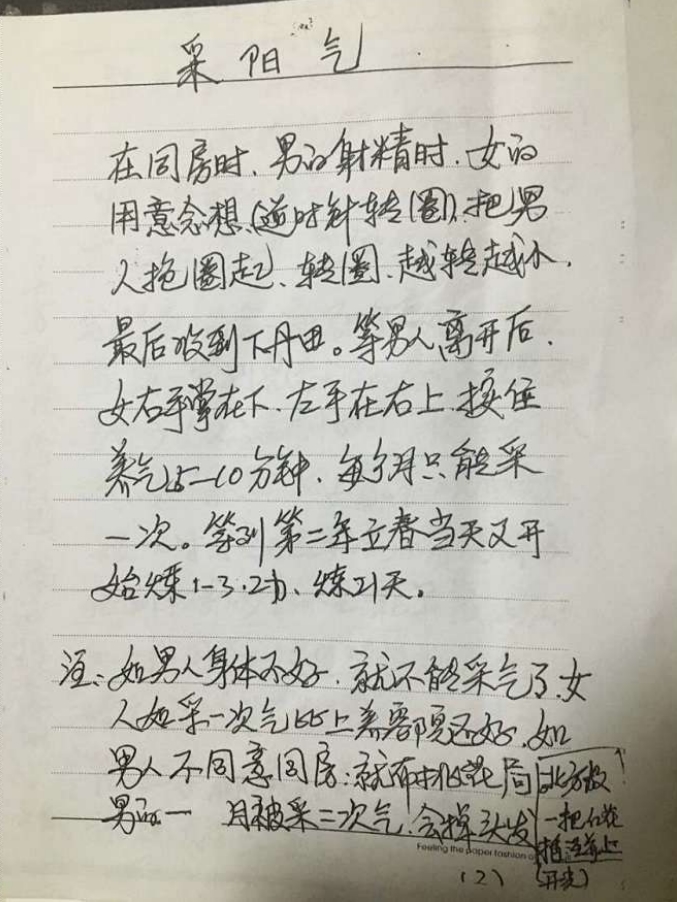 采阳气
在同房时、男的射精时、女的
用意念想、(逆时针转圈)、把男
人抱圈起、转圈、越转越小、
最后收到下丹田。等男人离开后、
女右手掌在下、左手在右上、按住
养气15—10分钟、每个月只能采
一次。等到第二年立春当天又开
始炼1-3·2功、炼21天。
注:如男人身体不好、就不能采气了、女
人如采一次气比上美容院还好、如
男人不同意同房:就布桃花局
男的一月被采二次气、会掉头发
北方放
一把红花
插
(开光)
Feeling the paper fashion
(2)